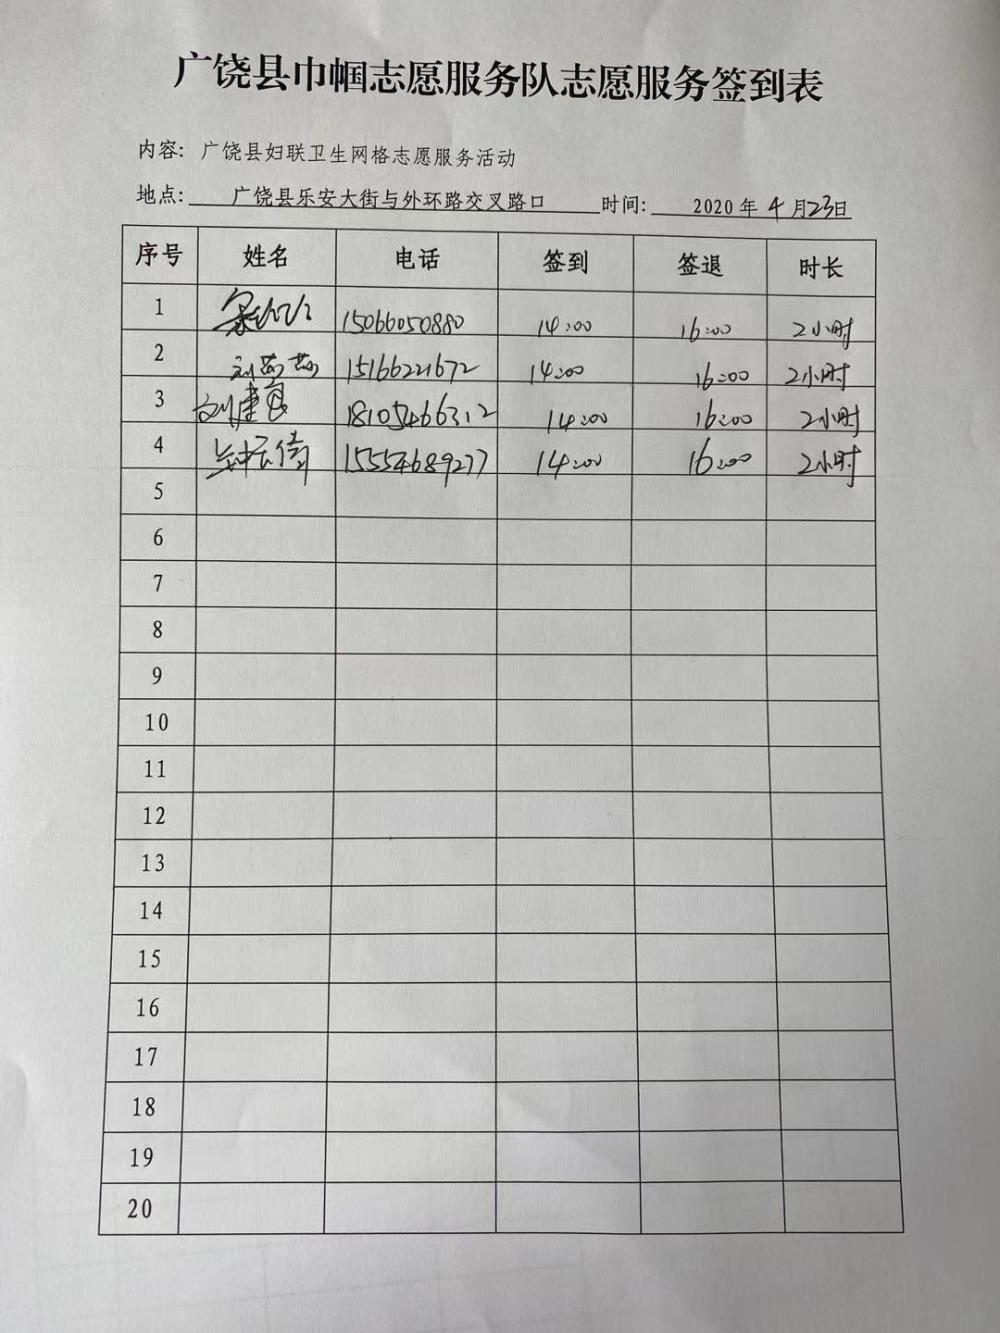 广饶县巾帼志愿服务队志愿服务签到表
内容: 广饶县妇联卫生网格志愿服务活动
地点: 广饶县乐安大街与外环路交叉路口 时间: 2020年4月23日
序号 姓名 电话 签到 签退 时长
1 15066050880 14:00 16:00 2小时
2 15166221672 14:00 16:00 2小时
3 18105466312 14:00 16:00 2小时
4 15554689277 14:00 16:00 2小时
5
6
7
8
9
10
11
12
13
14
15
16
17
18
19
20